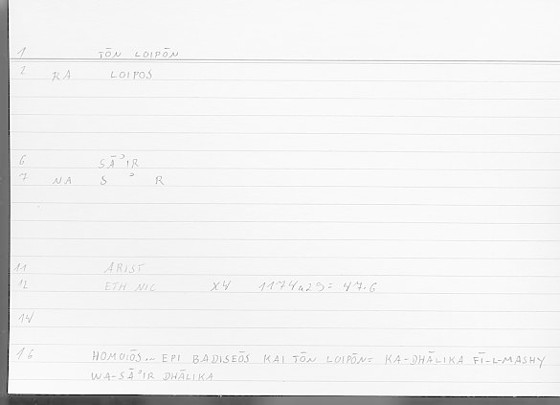 1 TŌN LOIPŌN
2 RA LOIPOS
6 SĀʾIR
7 NA S ʾ R
11 ARIST
12 ETH NIC X4 1174a29 = 47.6
14
16 HOMOIŌS... EPI BADISEŌS KAI TŌN LOIPŌN= KA-DHĀLIKA FĪ-L-MASHY
WA-SĀʾIR DHĀLIKA